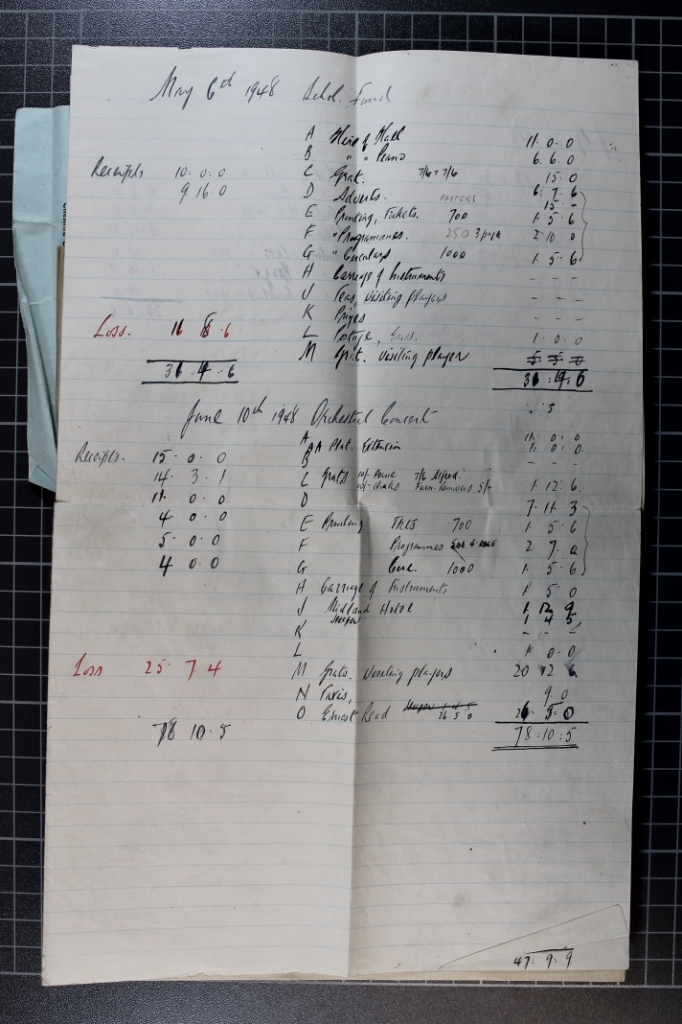 May 6th 1948 Schol. Fund
A Hire of Hall 11. 0. 0
B " " Piano 6. 6. 0
Receipts 10. 0. 0
C Grat. 7/6 + 7/6 15. 0
9 16. 0
D Adverts. 6. 7. 6
POSTERS 15 -
E Printing, Tickets. 700 1. 5. 6
F " Programmes. 250 3 page 2. 10. 0
G " Circulars 1000 1. 5. 6
H Carriage of Instruments - - -
J Teas, visiting players - - -
K - - -
Loss. 6
L Postage, 1. 0. 0
M Grat. visiting player
4. 6
6
June 10th 1948 Orchestral Concert
A 11. 0. 0
Receipts. 15. 0. 0
AA Plat. Extension 1. 0. 0
B - - -
14. 3. 1
C Grats 7/6 1. 12. 6
11. 0. 0
D 7. 11. 3
4. 0. 0
E Printing Tkts 700 1. 5. 6
5. 0. 0
F Programmes 2. 7. 0
4. 0. 0
G Circ. 1000 1. 5. 6
H Carriage of Instruments 1 5 0
J Midland Hotel 1 12 9
1 4 5
K - - -
L 1. 0. 0
Loss 25. 7 4
M Grats. visiting players 20 12 6
N Taxis, 9. 0
O Ernest Read 26. 5 0 26 5 0
78 10. 5
78: 10: 5
47. 9. 9